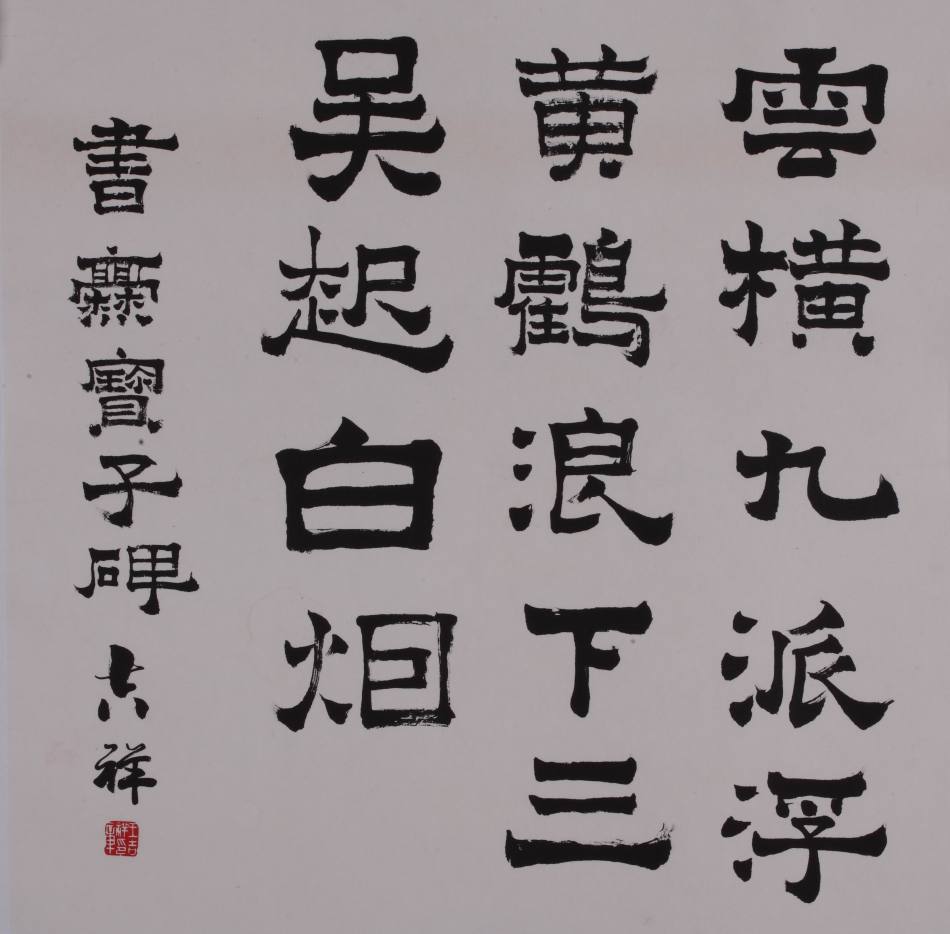 雲横九派浮
黄鸖浪下三
吴起白烟
書爨寶子碑 吉祥